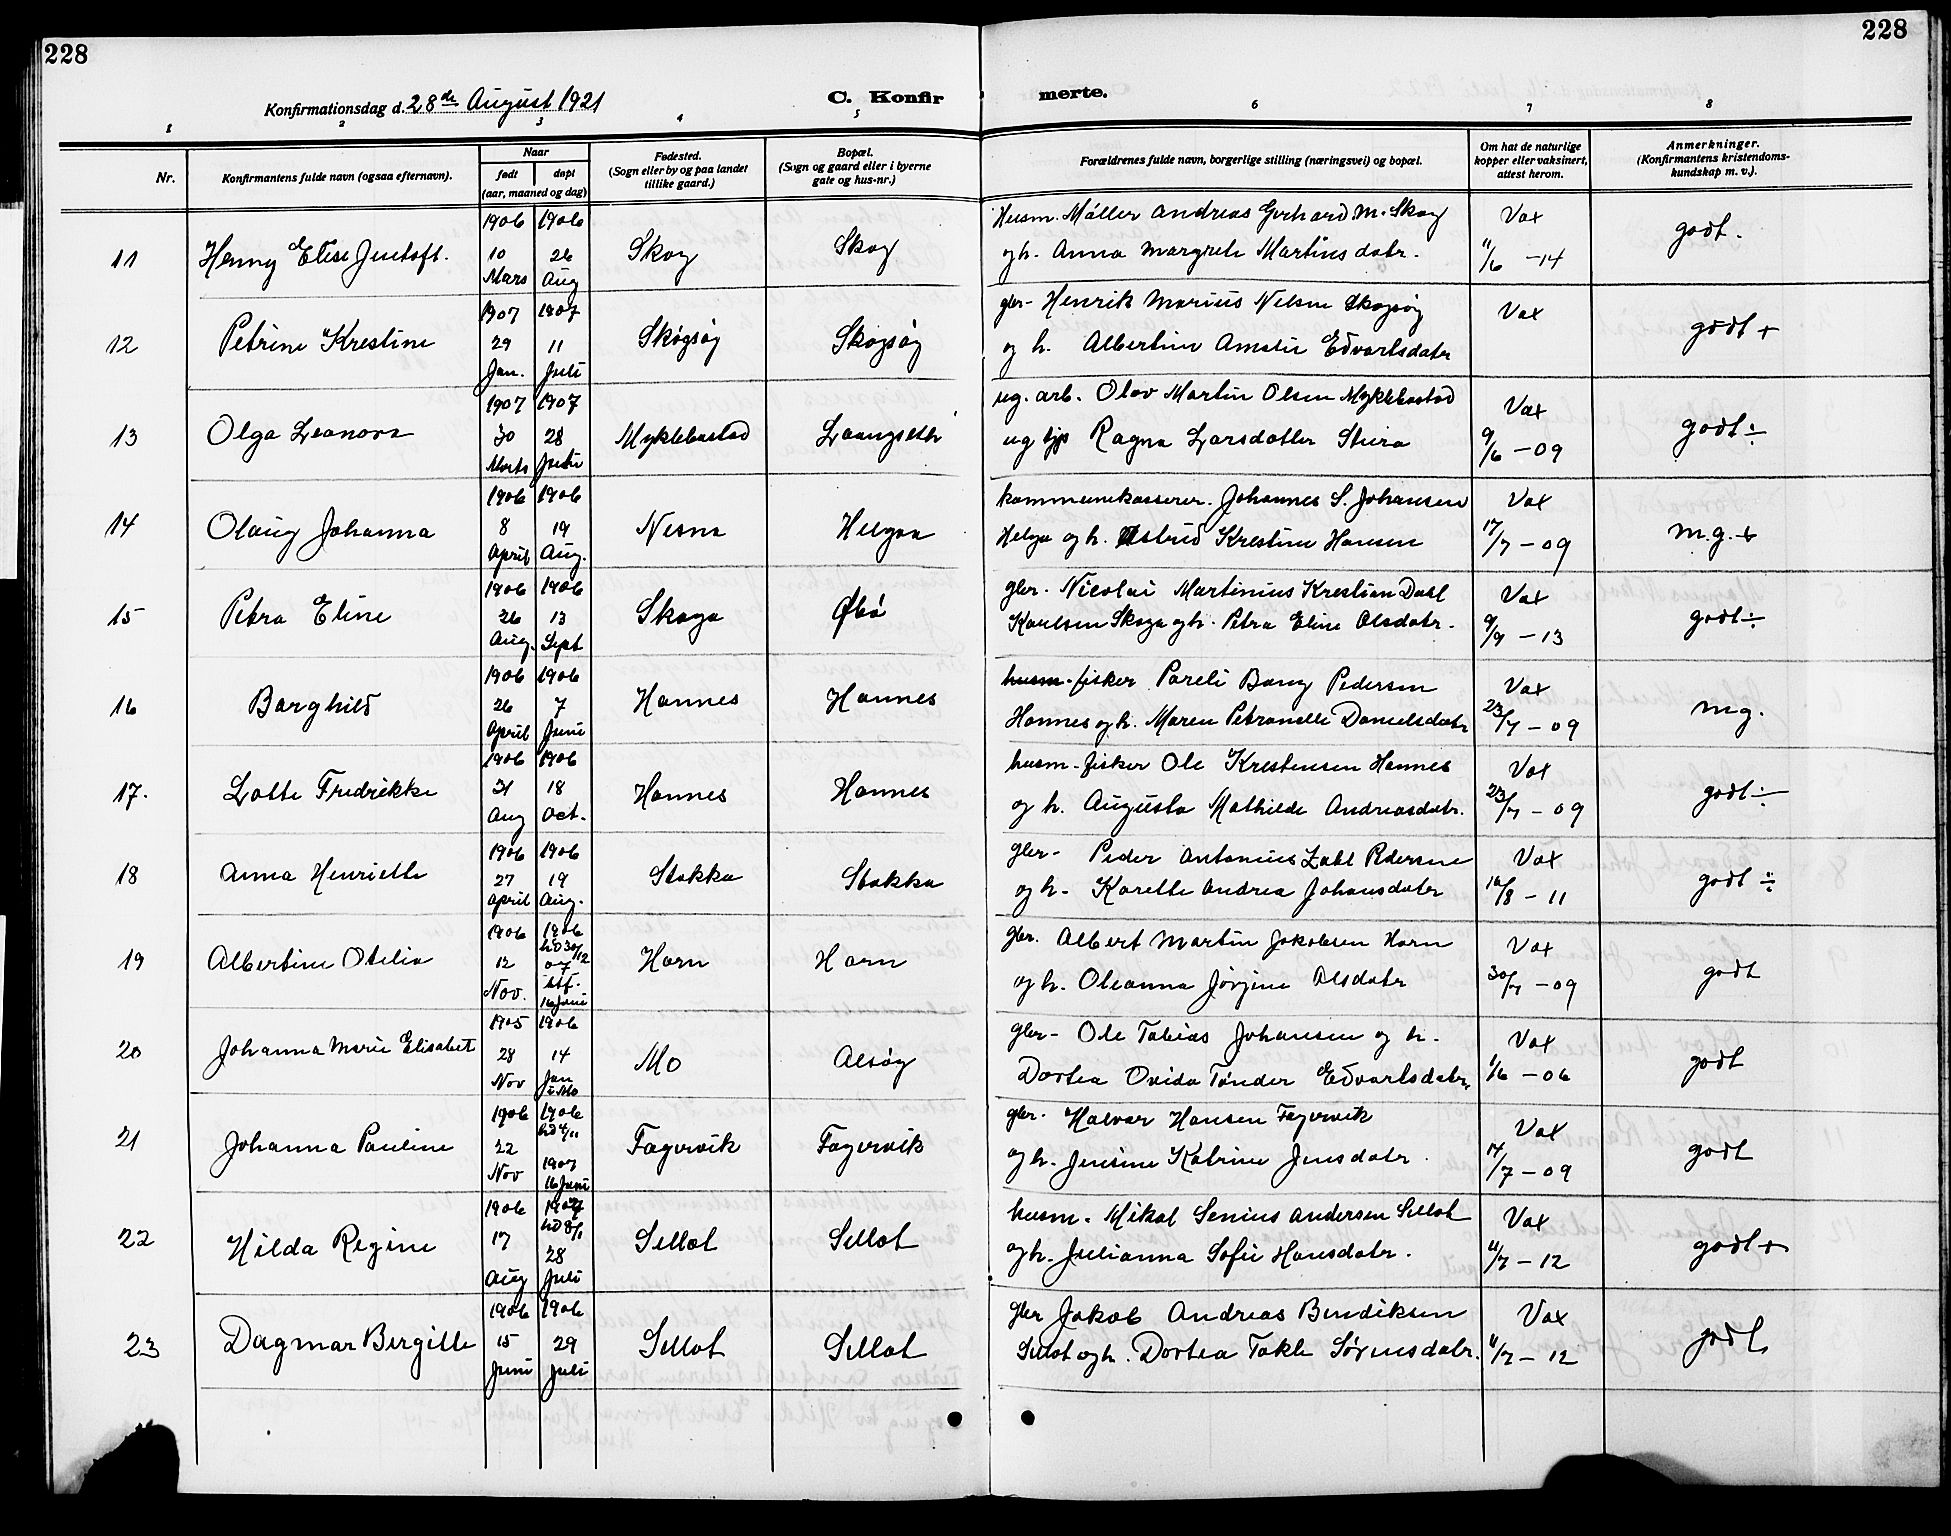 228
228
Konfirmationsdag d. 28de August 1921
C. Konfirmerte.
1 2 3 4 5 6 7 8
Nr.
Konfirmantens fulde navn (ogsaa efternavn).
Naar
født døpt
(aar, maaned og dag)
Fødested.
(Sogn eller by og paa landet
tillike gaard.)
Bopæl.
(Sogn og gaard eller i byerne
gate og hus-nr.)
Forældrenes fulde navn, borgerlige stilling (næringsvei) og bopæl.
Om hat de naturlige
kopper eller vaksinert,
attest herom.
Anmerkninger.
(Konfirmantens kristendoms-
kundskap m. v.).
1906 1906 Husm. Møller Andreas Gerhard M. Skog Vax
11 Henny Elise Justoft. 10 26 Skog Skog godt.
Mars Aug og h. Anna Margrete Martinsdatr. 11/6 -14
1907 1907 gbr- Henrik Marius Nelsen Skogsøy Vax
12 Petrine Krestine 29 11 Skogsøy Skogsøy godt +
Jan. Juli og h. Albertine Amalie Edvartsdatr
1907 1907 ug. arb. Olav Martin Olsen Myklebostad Vax
13 Olga Leonora 30 28 Myklebostad Laangsetr godt ÷
Marts ug tjp Ragna Larsdatter Stura 9/6 -09
1906 1906 kommunekasserer. Johannes S. Johansen Vax
14 Olaug Johanna 8 19 Nesna Helgaa m.g. +
April Aug. Helga og h. Astrid Krestine Hansen 17/7 -09
1906 1906 gbr. Nicolai Martinius Krestian Dahl Vax
15 Petra Eline 26 13 Skaga Øbø godt ÷
Aug. Sept Karlsen Skaga og h. Petra Eline Olsdatr. 9/9 -13
1906 1906 husm-fisker Pareli Bang Pedersen Vax
16 Borghild 26 7 Hannes Hannes mg.
April Juni Hannes og h. Maren Petronelle Danielsdatr 23/7 -09
1906 1906 husm-fisker Ole Krestensen Hannes Vax
17. Lotte Fredrikke 31 18 Hannes Hannes godt ÷
Aug Oct. og h. Augusta Mathilde Andreasdatr. 23/7 -09
1906 1906 gbr- Peder Antonius Zahl Pedersen Vax
18 Anna Henriette 27 19 Stokka Stokka godt ÷
April Aug. og h. Karette Andrea Johansdatr 16/8 -11
1906 1906 gbr. Albert Martin Jakobsen Horn Vax
hd 30/12
19 Albertine Otelia 12 07 Horn Horn godt
Nov. stf. 16 Juni og h. Oleanna Jørgine Olsdatr 30/7 -09
1905 1906 gbr- Ole Tobias Johansen og h. Vax
20 Johanna Marie Elisabet 28 14 Mo Alsøy godt
Nov Jan i Mo Dortea Ovida Tønder Edvartsdatr. 1/6 -06
1906 1906 gbr. Halvar Hansen Fagervik Vax
hd 4/11
21 Johanna Pauline 22 Fagervik Fagervik godt
Nov 1907 16 Juni og h. Jensine Katrine Jensdatr. 14/7 -09
1906 1907 husm. Mikal Senius Andersen Sellot Vax
hd 8/1
22 Hilda Regine 17 28 Sellot Sellot godt +
Aug Juli og h. Julianna Sofie Hansdatr. 11/7 -12
1906 1906 gbr Jakob Andreas Bendiksen Vax
23 Dagmar Bergitte 15 29 Sellot Sellot godt
Juni Juli Sellot og h. Dortea Takle Sørensdatr. 11/7 -12